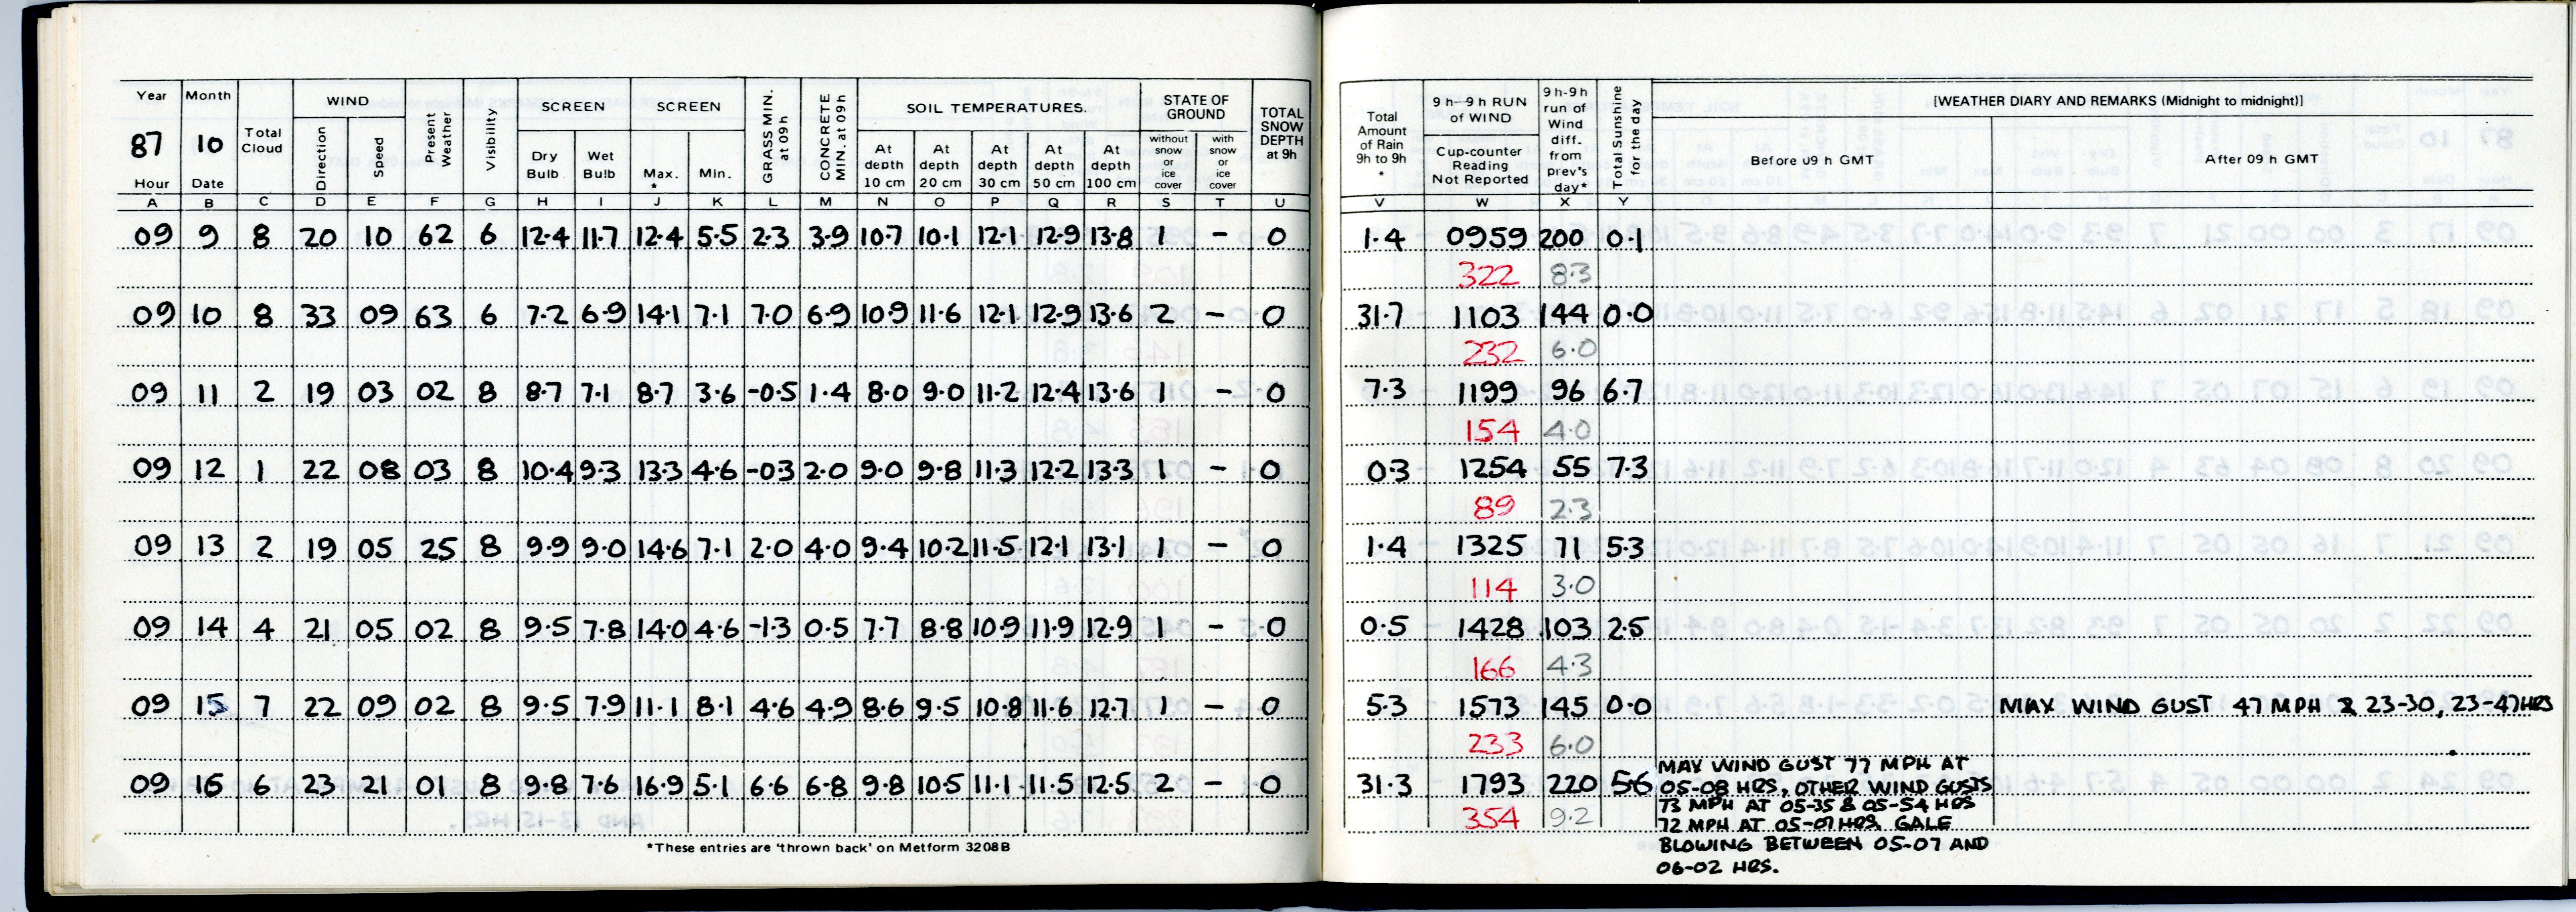 Year Month WIND SCREEN SCREEN SOIL TEMPERATURES. STATE OF GROUND TOTAL SNOW DEPTH at 9h
87 10 Total Cloud Direction Speed Present Weather Visibility Dry Bulb Wet Bulb Max. * Min. GRASS MIN. at 09h CONCRETE MIN. at 09h At depth 10 cm At depth 20 cm At depth 30 cm At depth 50 cm At depth 100 cm without snow or ice cover with snow or ice cover
Hour Date
A B C D E F G H I J K L M N O P Q R S T U
09 9 8 20 10 62 6 12.4 11.7 12.4 5.5 2.3 3.9 10.7 10.1 12.1 12.9 13.8 1 - 0
09 10 8 33 09 63 6 7.2 6.9 14.1 7.1 7.0 6.9 10.9 11.6 12.1 12.9 13.6 2 - 0
09 11 2 19 03 02 8 8.7 7.1 8.7 3.6 -0.5 1.4 8.0 9.0 11.2 12.4 13.6 1 - 0
09 12 1 22 08 03 8 10.4 9.3 13.3 4.6 -0.3 2.0 9.0 9.8 11.3 12.2 13.3 1 - 0
09 13 2 19 05 25 8 9.9 9.0 14.6 7.1 2.0 4.0 9.4 10.2 11.5 12.1 13.1 1 - 0
09 14 4 21 05 02 8 9.5 7.8 14.0 4.6 -1.3 0.5 7.7 8.8 10.9 11.9 12.9 1 - 0
09 15 7 22 09 02 8 9.5 7.9 11.1 8.1 4.6 4.9 8.6 9.5 10.8 11.6 12.7 1 - 0
09 16 6 23 21 01 8 9.8 7.6 16.9 5.1 6.6 6.8 9.8 10.5 11.1 11.5 12.5 2 - 0
*These entries are 'thrown back' on Metform 3208B
Total Amount of Rain 9h to 9h * 9 h–9 h RUN of WIND Cup-counter Reading Not Reported 9h-9h run of Wind diff. from prev's day* Total Sunshine for the day [WEATHER DIARY AND REMARKS (Midnight to midnight)]
Before 09 h GMT After 09 h GMT
V W X Y
1.4 0959 200 0.1
322 8.3
31.7 1103 144 0.0
232 6.0
7.3 1199 96 6.7
154 4.0
0.3 1254 55 7.3
89 2.3
1.4 1325 71 5.3
114 3.0
0.5 1428 103 2.5
166 4.3
5.3 1573 145 0.0 MAX WIND GUST 47 MPH & 23-30, 23-47 HRS
233 6.0
31.3 1793 220 5.6
354 9.2
MAX WIND GUST 77 MPH AT
05-08 HRS, OTHER WIND GUSTS
73 MPH AT 05-35 & 05-54 HRS
72 MPH AT 05-07 HRS. GALE
BLOWING BETWEEN 05-07 AND
06-02 HRS.